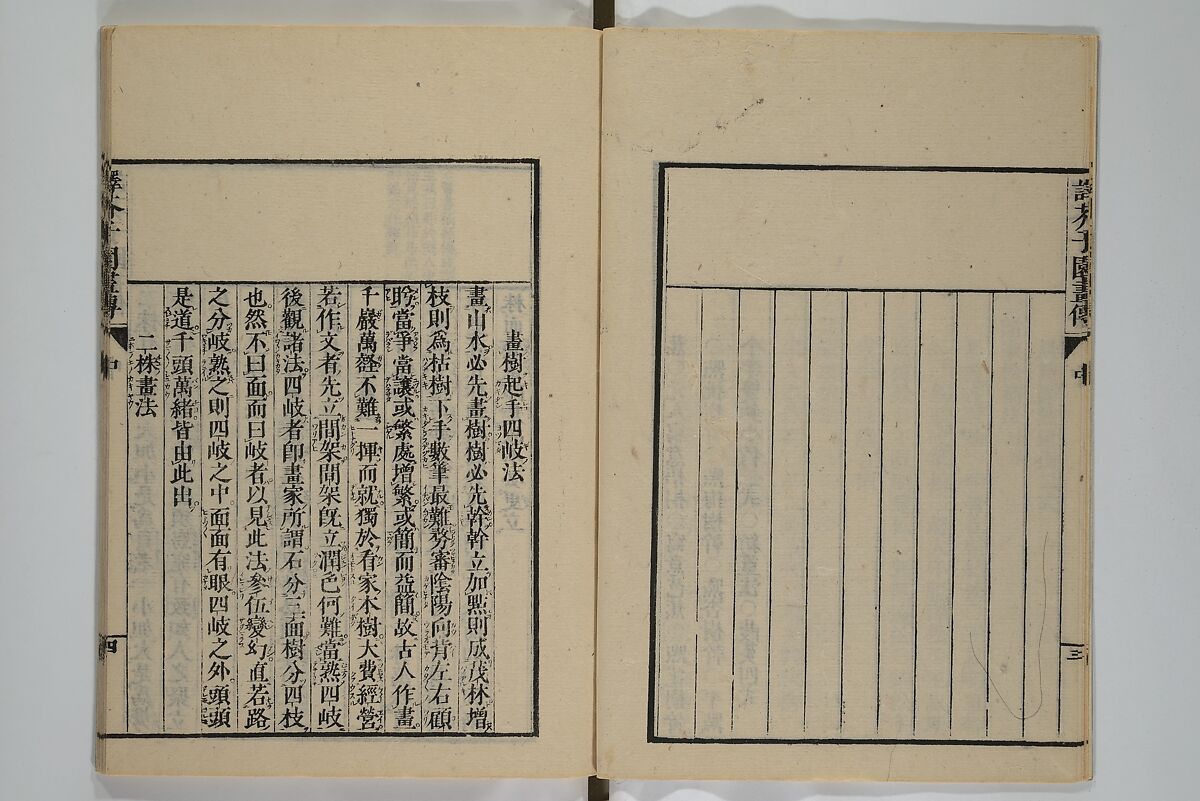 譯芥子園畫傳
中
三
畫樹起手四岐法
畫山水必先畫樹樹必先幹幹立加㸃則成茂林增
枝則爲枯樹下手數筆最難務審陰陽向背左右顧
盼當爭當讓或繁處增繁或簡而益簡故古人作畫
千巖萬壑不難一揮而就獨於看家本樹大費經營
若作文者先立間架間架旣立潤色何難當熟四岐
後觀諸法四岐者卽畫家所謂石分三面樹分四枝
也然不曰面而曰岐者以見此法參伍變幻直若路
之分岐熟之則四岐之中面面有眼四岐之外頭頭
是道千頭萬緒皆由此出
二株畫法
譯芥子園畫傳
中
四